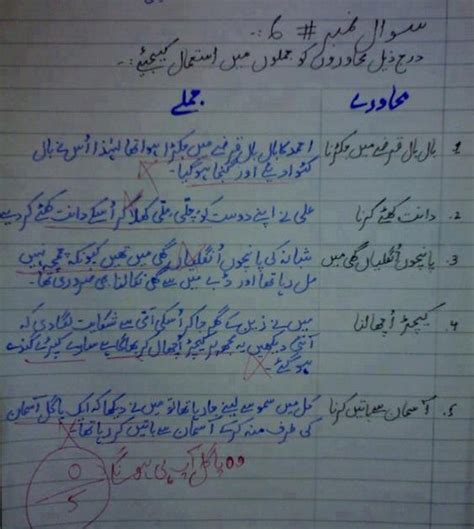 سوال نمبر # 6 :-
درج ذیل محاوروں کو جملوں میں استعمال کیجئیے :-
محاورے جملے
1. بال بال قرضے میں جکڑنا احمد کا بال بال قرضے میں جکڑا ہوا تھا لہٰذا اُس نے بال
کٹوا دیئے اور گنجا ہوگیا-
2. دانت کھٹے کرنا علی نے اپنے دوست کو چلّی ملّی کھلا کر اُسکے دانت کھٹے کر دیے
3. پانچوں اُنگلیاں گھی میں شبانہ کی پانچوں اُنگلیاں گھی میں تھیں کیونکہ چمچی نہیں
مل رہا تھا اور ڈبے میں سے گھی نکالنا بھی ضروری تھا-
4. کیچڑ اُچھالنا میں نے ذین کے گھر جا کر اُسکی آنٹی سے شکایت لگا دی کہ
آنٹی دیکھیں یہ مجھ پر کیچڑ اُچھال کر بھاگا ہے سارے کپڑے گندے
ہو گئے-
5. آسمان سے باتیں کرنا کل میں سموسے لینے جا رہا تھا تو میں نے دیکھا کہ ایک پاگل آسمان
کی طرف منہ کر کے آسمان سے باتیں کر رہا تھا-
وہ پاگل آپ ہی ہونگا
0
5